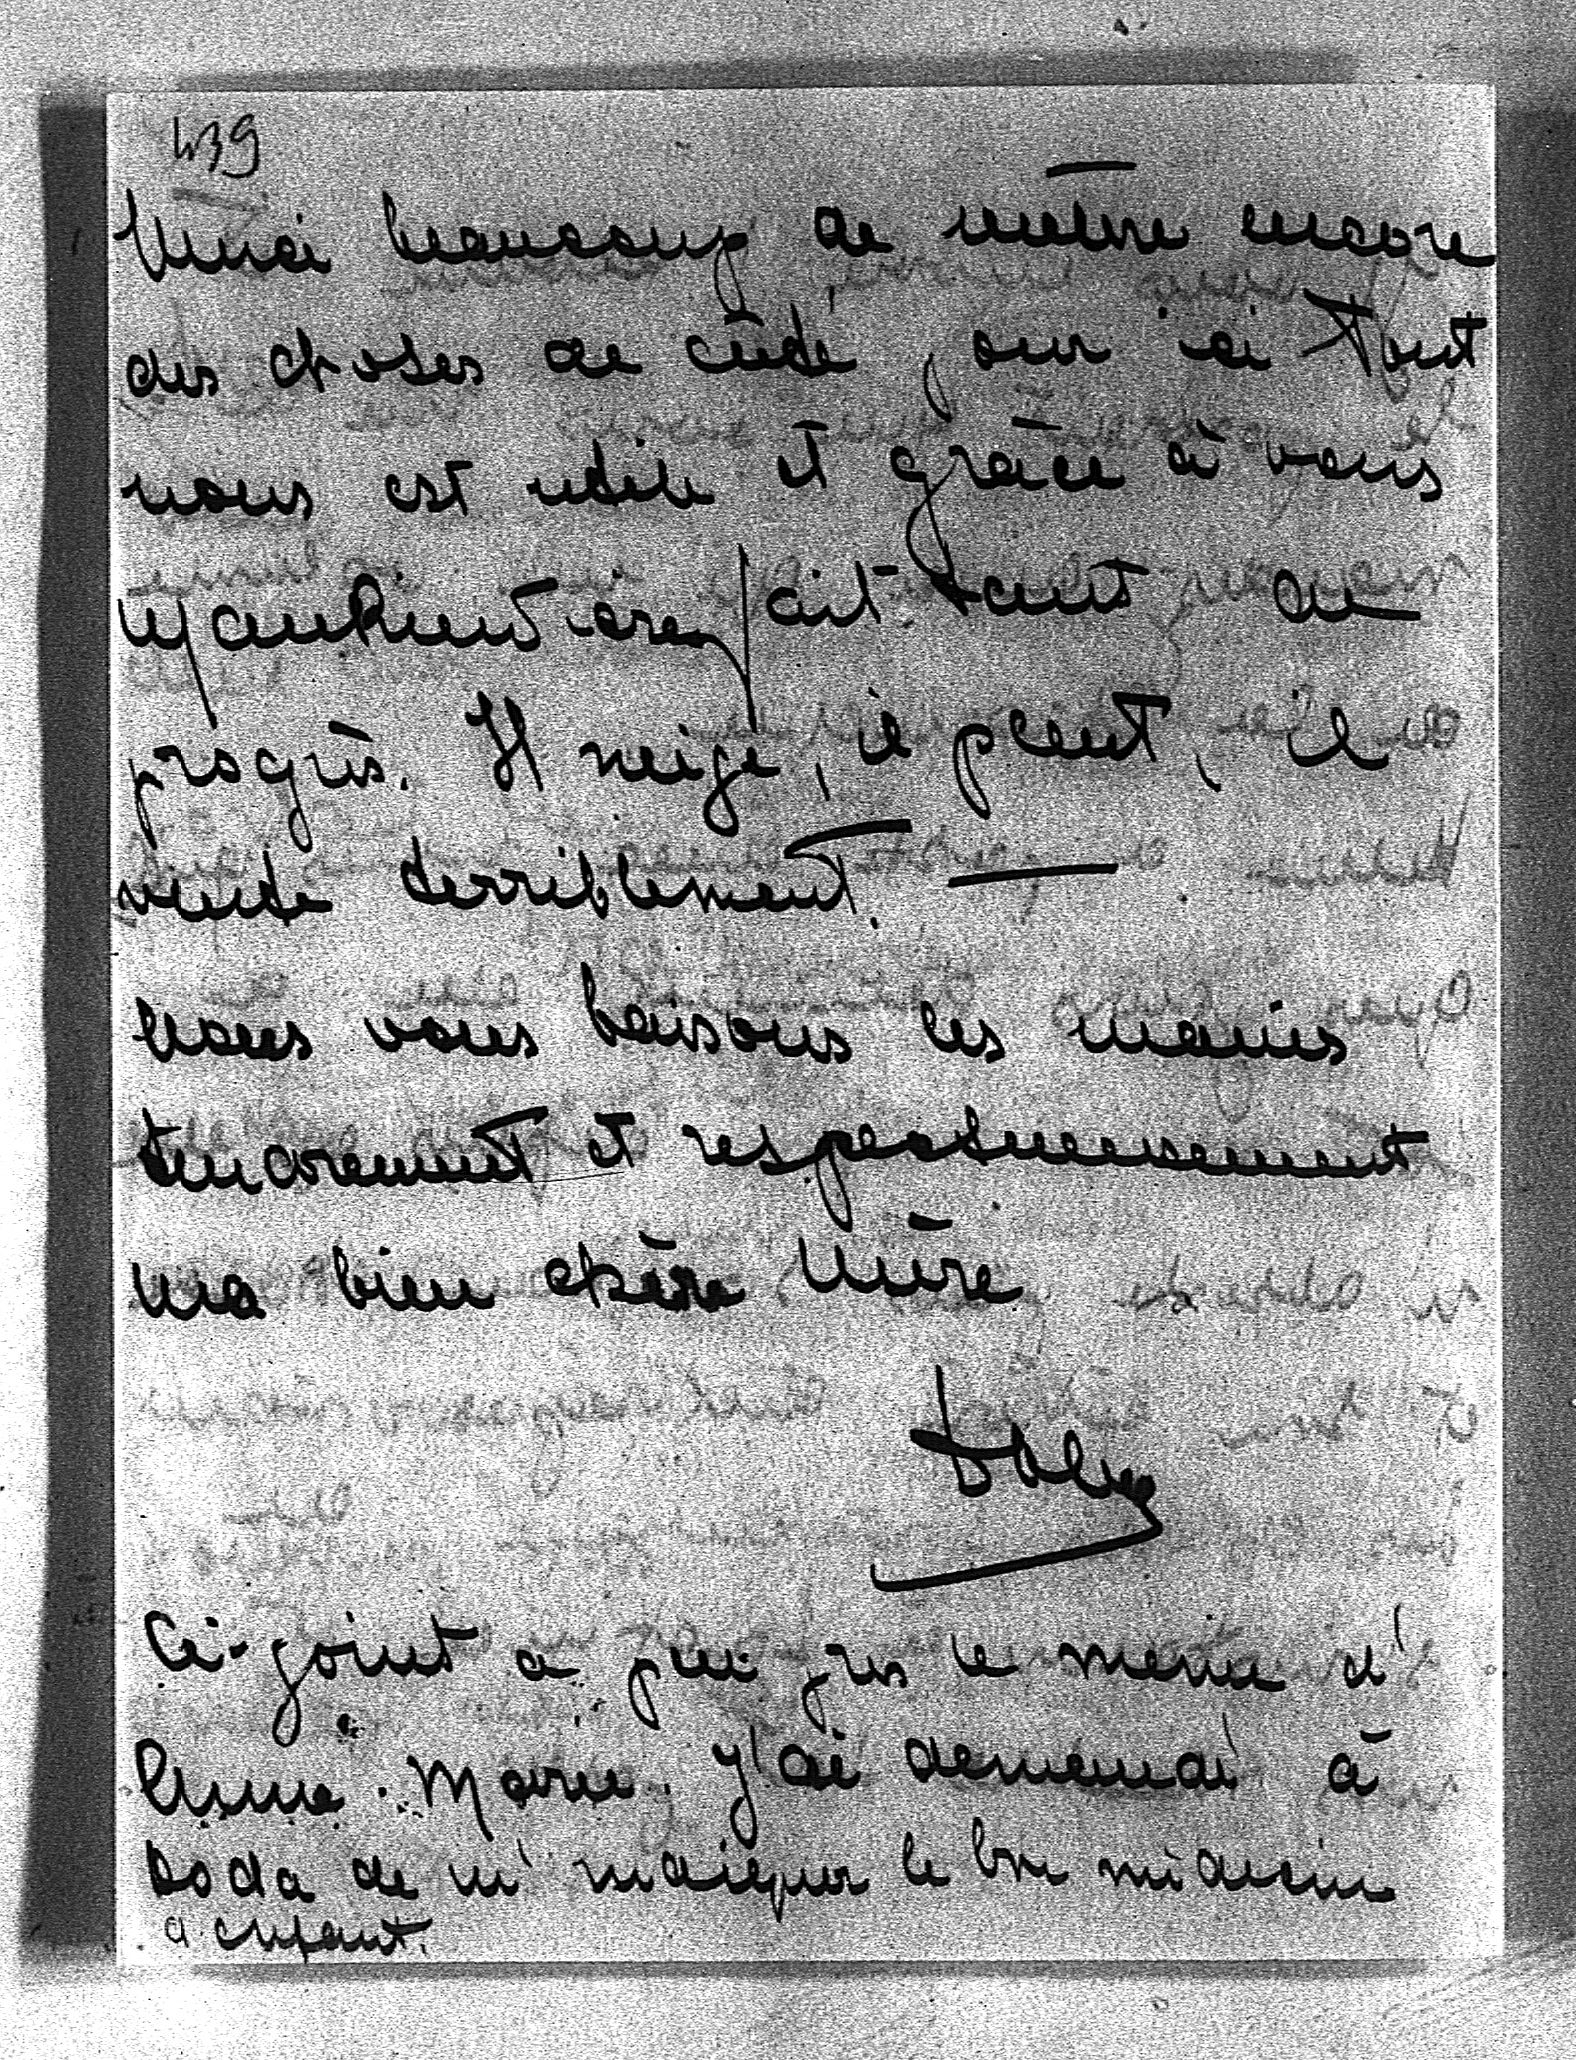 439
Merci beaucoup de mettre encore
des choses de côté, car ici tout
nous est utile et grâce à vous
l'appartement fait tant de
progrès. Il neige, il pleut, il
vente terriblement. —
Nous vous baisons les mains
tendrement et respectueusement
ma bien chère Mère
Ci-joint à peu près le menu d'
Anne-Marie. J'ai demandé à
Doda de m'indiquer le bon médecin
d'enfant.